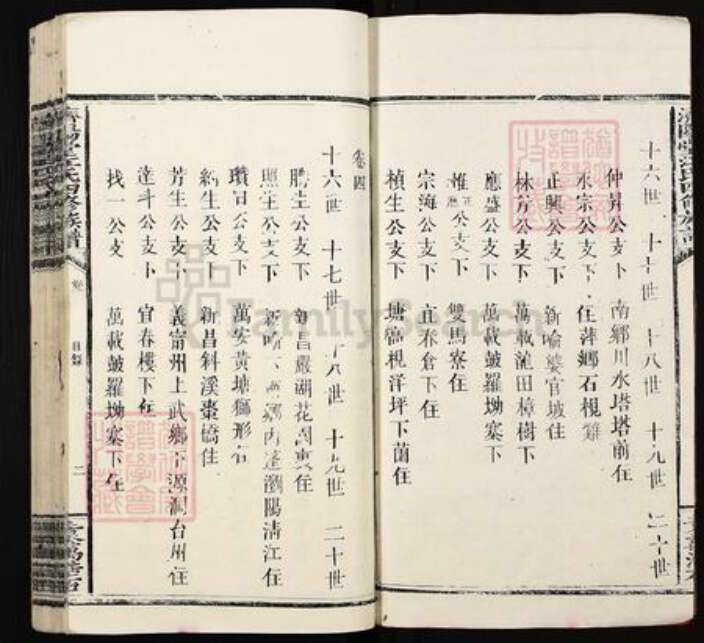 十六世 十七世 十八世 十九世 二十世
仲昇公支下 南鄉川水塔塔前住
永宗公支下 住萍鄉石梘
正興公支下 新喻婆官坡住
林方公支下 萬載龍田樟樹下
應盛公支下 萬載皷羅坳寨下
公支下 雙馬寮住
宗海公支下 宜春倉下住
楨生公支下 塘窩梘洋坪下住
卷四
十六世 十七世 十八世 十九世 二十世
勝生公支下 新昌嚴湖花園裏住
照生公支下 瀏陽清江住
瓚官公支下 萬安黃塘獅形
約生公支下 新昌斜溪棗橋住
芳生公支下 義甯州上武鄉下源洞台州住
達斗公支下 宜春樓下住
找一公支 萬載皷羅坳寨下住
江氏四修族譜
卷 目錄
二
FamilySearch